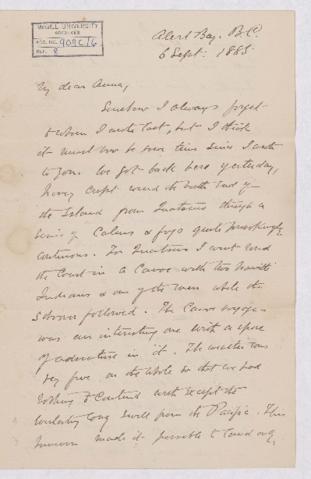 McGILL UNIVERSITY
ARCHIVES
ACC. NO. 909C/6
REF. 8
Alert Bay, B.C.
6 Sept: 1885
My dear Anna,
Somehow I always forget
when I wrote last, but I think
it must now be some time since I wrote
to you. We got back here yesterday,
having crept round the north end of
the Island from Quatsino through a
series of calms & fogs quite
continuous. For Quatsino I went round
the Coast in a Canoe with two
Indians & one of the men while the
Schooner followed. The Canoe voyage
was an interesting one with a spice
of adventure in it. The weather was
very fine on the whole so that we had
nothing to contend with except the
long swell from the Pacific. This
however made it possible to land only